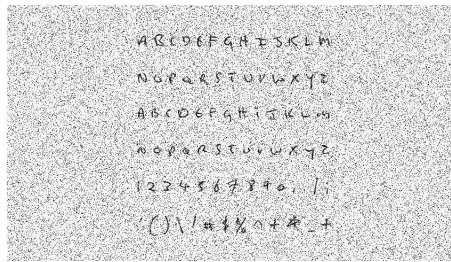 A B C D E F G H I J K L M
N O P Q R S T U V W X Y Z
A B C D E F G H i J K L m
n O P Q R S T U v w X Y Z
1 2 3 4 5 6 7 8 9 0 . / ;
' ( ) \ / # $ % ^ + * _ +